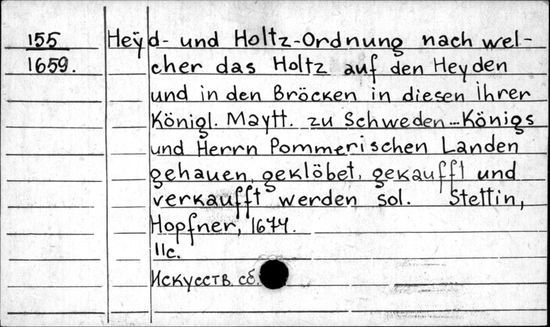 155 Heÿd- und Holtz-Ordnung nach wel-
1659. cher das Holtz auf den Heyden
und in den Bröcken in diesen ihrer
Königl. Maytt. zu Schweden...Königs
und Herrn Pommerischen Landen
gehauen, geklöbet, gekaufft und
verkaufft werden sol. Stettin,
Hopfner, 1677.
11c.
Искусств. сб.